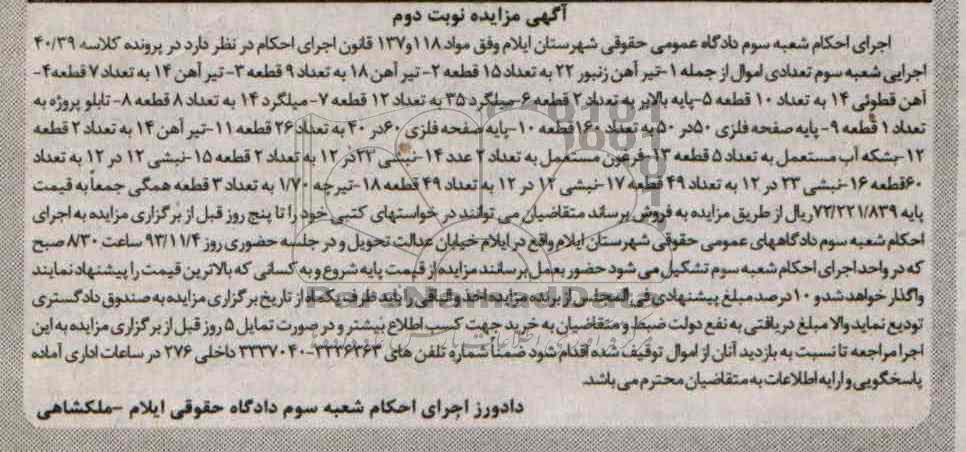 آگهی مزایده نوبت دوم
اجرای احکام شعبه سوم دادگاه عمومی حقوقی شهرستان ایلام وفق مواد ۱۱۸و۱۳۷ قانون اجرای احکام در نظر دارد در پرونده کلاسه ۴۰/۳۹
اجرایی شعبه سوم تعدادی اموال از جمله ۱-تیر آهن زنبور ۲۲ به تعداد ۱۵ قطعه ۲- تیر آهن ۱۸ به تعداد ۹ قطعه ۳- تیر آهن ۱۴ به تعداد ۷ قطعه۴-
آهن قطوئی ۱۴ به تعداد ۱۰ قطعه ۵-پایه بالابر به تعداد ۲ قطعه ۶-میلگرد ۳۵ به تعداد ۱۲ قطعه ۷-میلگرد ۱۴ به تعداد ۸ قطعه ۸- تابلو پروژه به
تعداد ۱ قطعه ۹- پایه صفحه فلزی ۵۰در ۵۰ به تعداد ۱۶۰قطعه ۱۰-پایه صفحه فلزی ۶۰در ۴۰ به تعداد ۲۶ قطعه ۱۱-تیر آهن ۱۴ به تعداد ۲ قطعه
۱۲-بشکه آب مستعمل به تعداد ۵ قطعه ۱۳-فرغون مستعمل به تعداد ۲ عدد ۱۴-نبشی ۲۳در ۱۲ به تعداد ۲ قطعه ۱۵-نبشی ۱۲ در ۱۲ به تعداد
۶۰قطعه ۱۶-نبشی ۲۳ در ۱۲ به تعداد ۴۹ قطعه ۱۷-نبشی ۱۲ در ۱۲ به تعداد ۴۹ قطعه ۱۸-تیرچه ۱/۷۰ به تعداد ۳ قطعه همگی جمعاً به قیمت
پایه ۷۲/۲۲۱/۸۳۹ریال از طریق مزایده به فروش برساند متقاضیان می توانند در خواستهای کتبی خود را تا پنج روز قبل از برگزاری مزایده به اجرای
احکام شعبه سوم دادگاههای عمومی حقوقی شهرستان ایلام واقع در ایلام خیابان عدالت تحویل و در جلسه حضوری روز ۹۳/۱۱/۴ ساعت ۸/۳۰ صبح
که در واحد اجرای احکام شعبه سوم تشکیل می شود حضور بعمل برسانند مزایده از قیمت پایه شروع و به کسانی که بالاترین قیمت را پیشنهاد نمایند
واگذار خواهد شد و ۱۰ درصد مبلغ پیشنهادی فی المجلس از برنده مزایده اخذ و الباقی را باید ظرف یکماه از تاریخ برگزاری مزایده به صندوق دادگستری
تودیع نماید والا مبلغ دریافتی به نفع دولت ضبط و متقاضیان به خرید جهت کسب اطلاع بیشتر و در صورت تمایل ۵ روز قبل از برگزاری مزایده به این
اجرا مراجعه تا نسبت به بازدید آنان از اموال توقیف شده اقدام شود ضمناً شماره تلفن های ۳۳۳۶۳۶۳-۳۳۳۷۰۴۰ داخلی ۲۷۶ در ساعات اداری آماده
پاسخگویی و ارایه اطلاعات به متقاضیان محترم می باشد.
دادورز اجرای احکام شعبه سوم دادگاه حقوقی ایلام -ملکشاهی